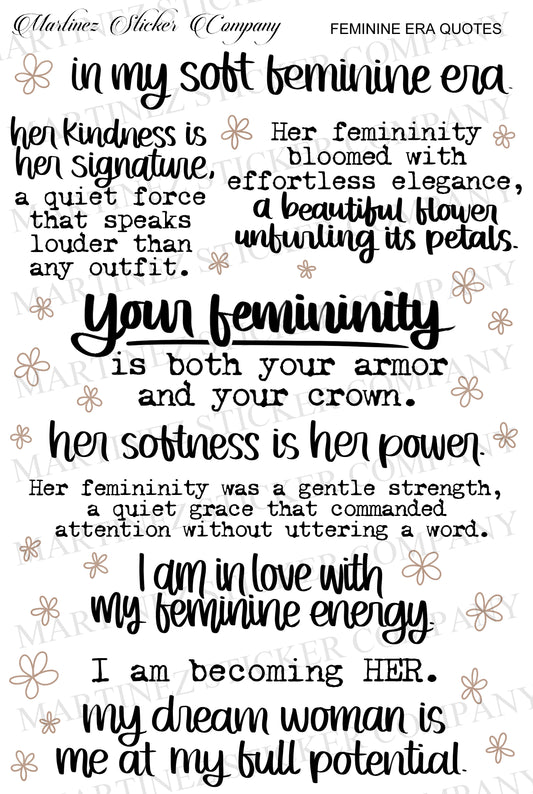 Martinez Sticker Company
FEMININE ERA QUOTES
in my soft feminine era.
her kindness is
her signature,
a quiet force
that speaks
louder than
any outfit.
Her femininity
bloomed with
effortless elegance,
a beautiful flower
unfurling its petals.
Your femininity
is both your armor
and your crown.
her softness is her power.
Her femininity was a gentle strength,
a quiet grace that commanded
attention without uttering a word.
I am in love with
my feminine energy.
I am becoming HER.
my dream woman is
me at my full potential.
MARTINEZ STICKER COMPANY